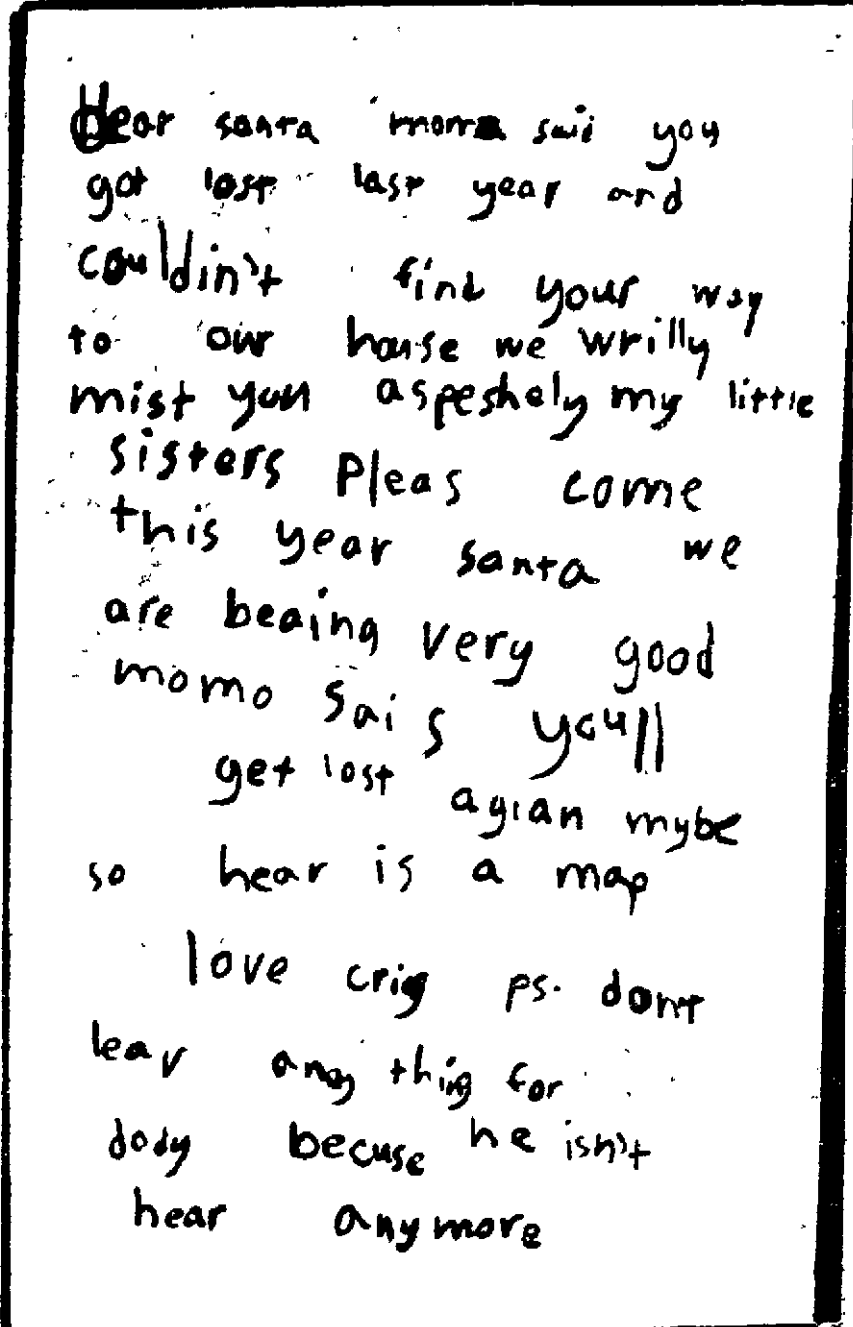 Dear santa moma said you
got lost last year and
couldin't find your way
to our house we wrilly
mist you aspeshely my little
sisters Pleas come
this year santa we
are beaing very good
momo sais you'll
get lost agian mybe
so hear is a map
love crig ps. dont
leav any thing for
dody becuse he isn't
hear anymore